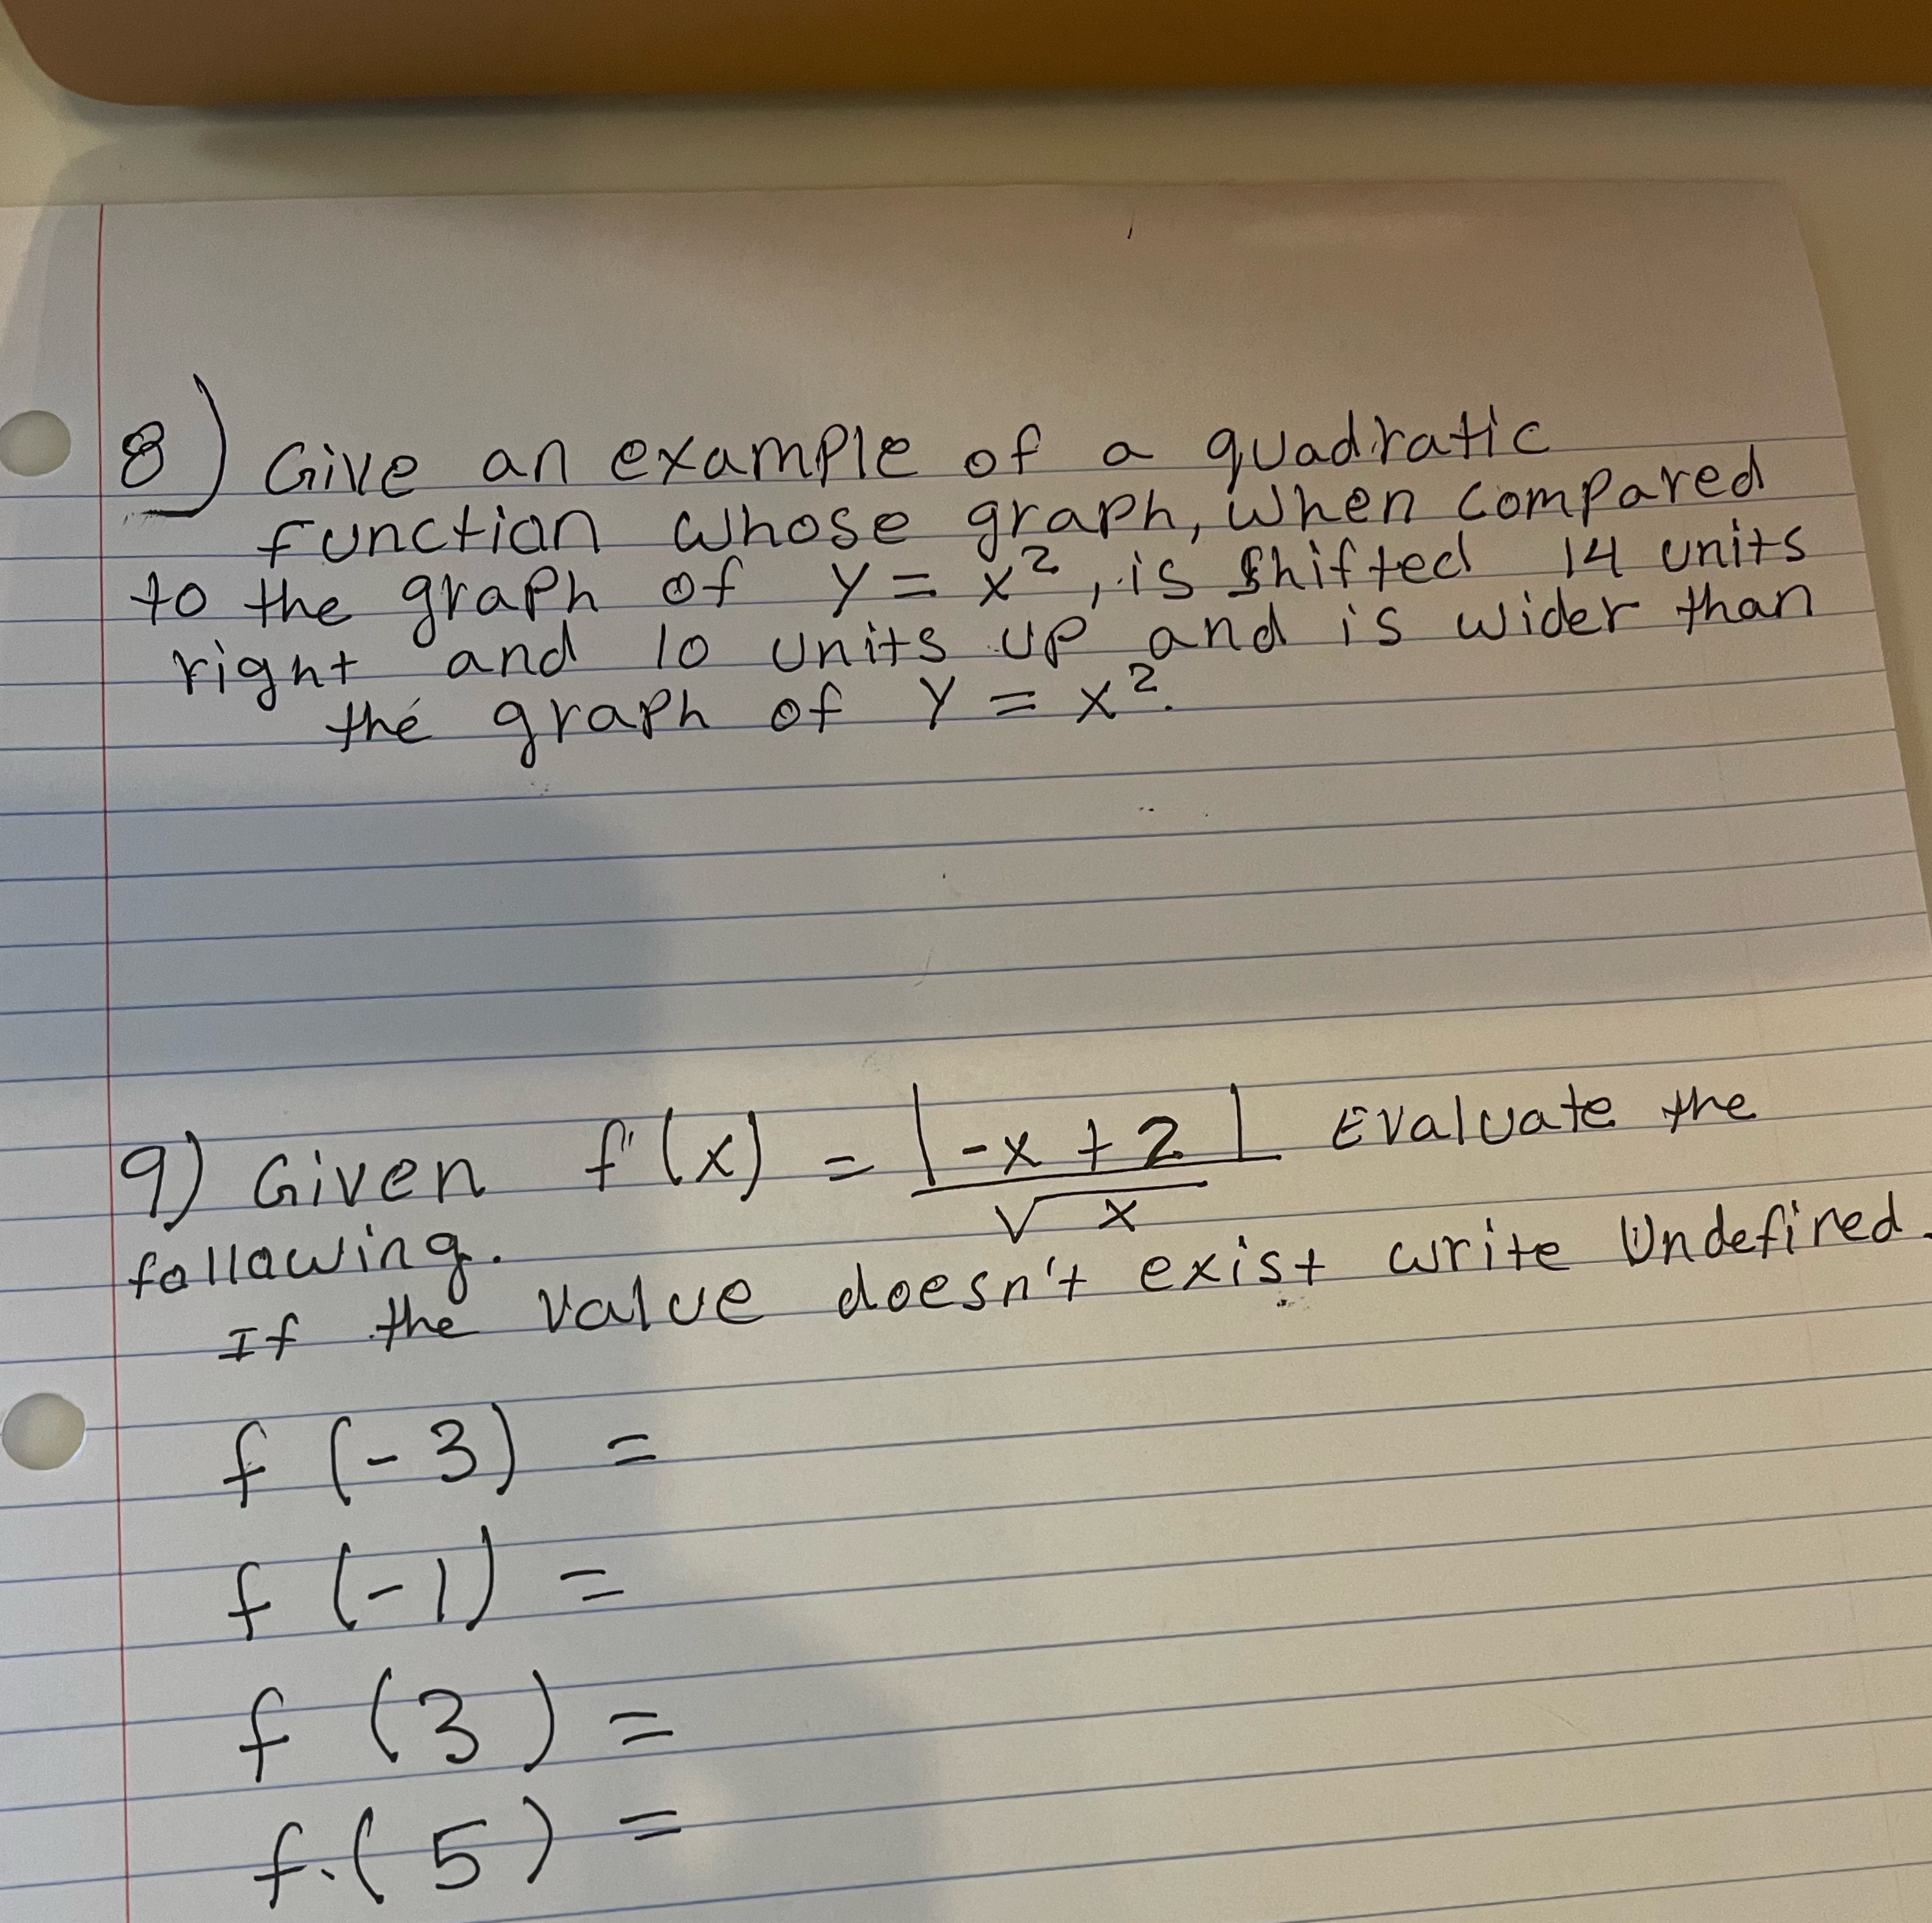 8) Give an example of a quadratic
function whose graph, when compared
to the graph of y = x², is shifted 14 units
right and 10 units up and is wider than
the graph of y = x².
9) Given f(x) = |-x + 2| / √x Evaluate the
following.
If the value doesn't exist write Undefined.
f (-3) =
f (-1) =
f (3) =
f (5) =